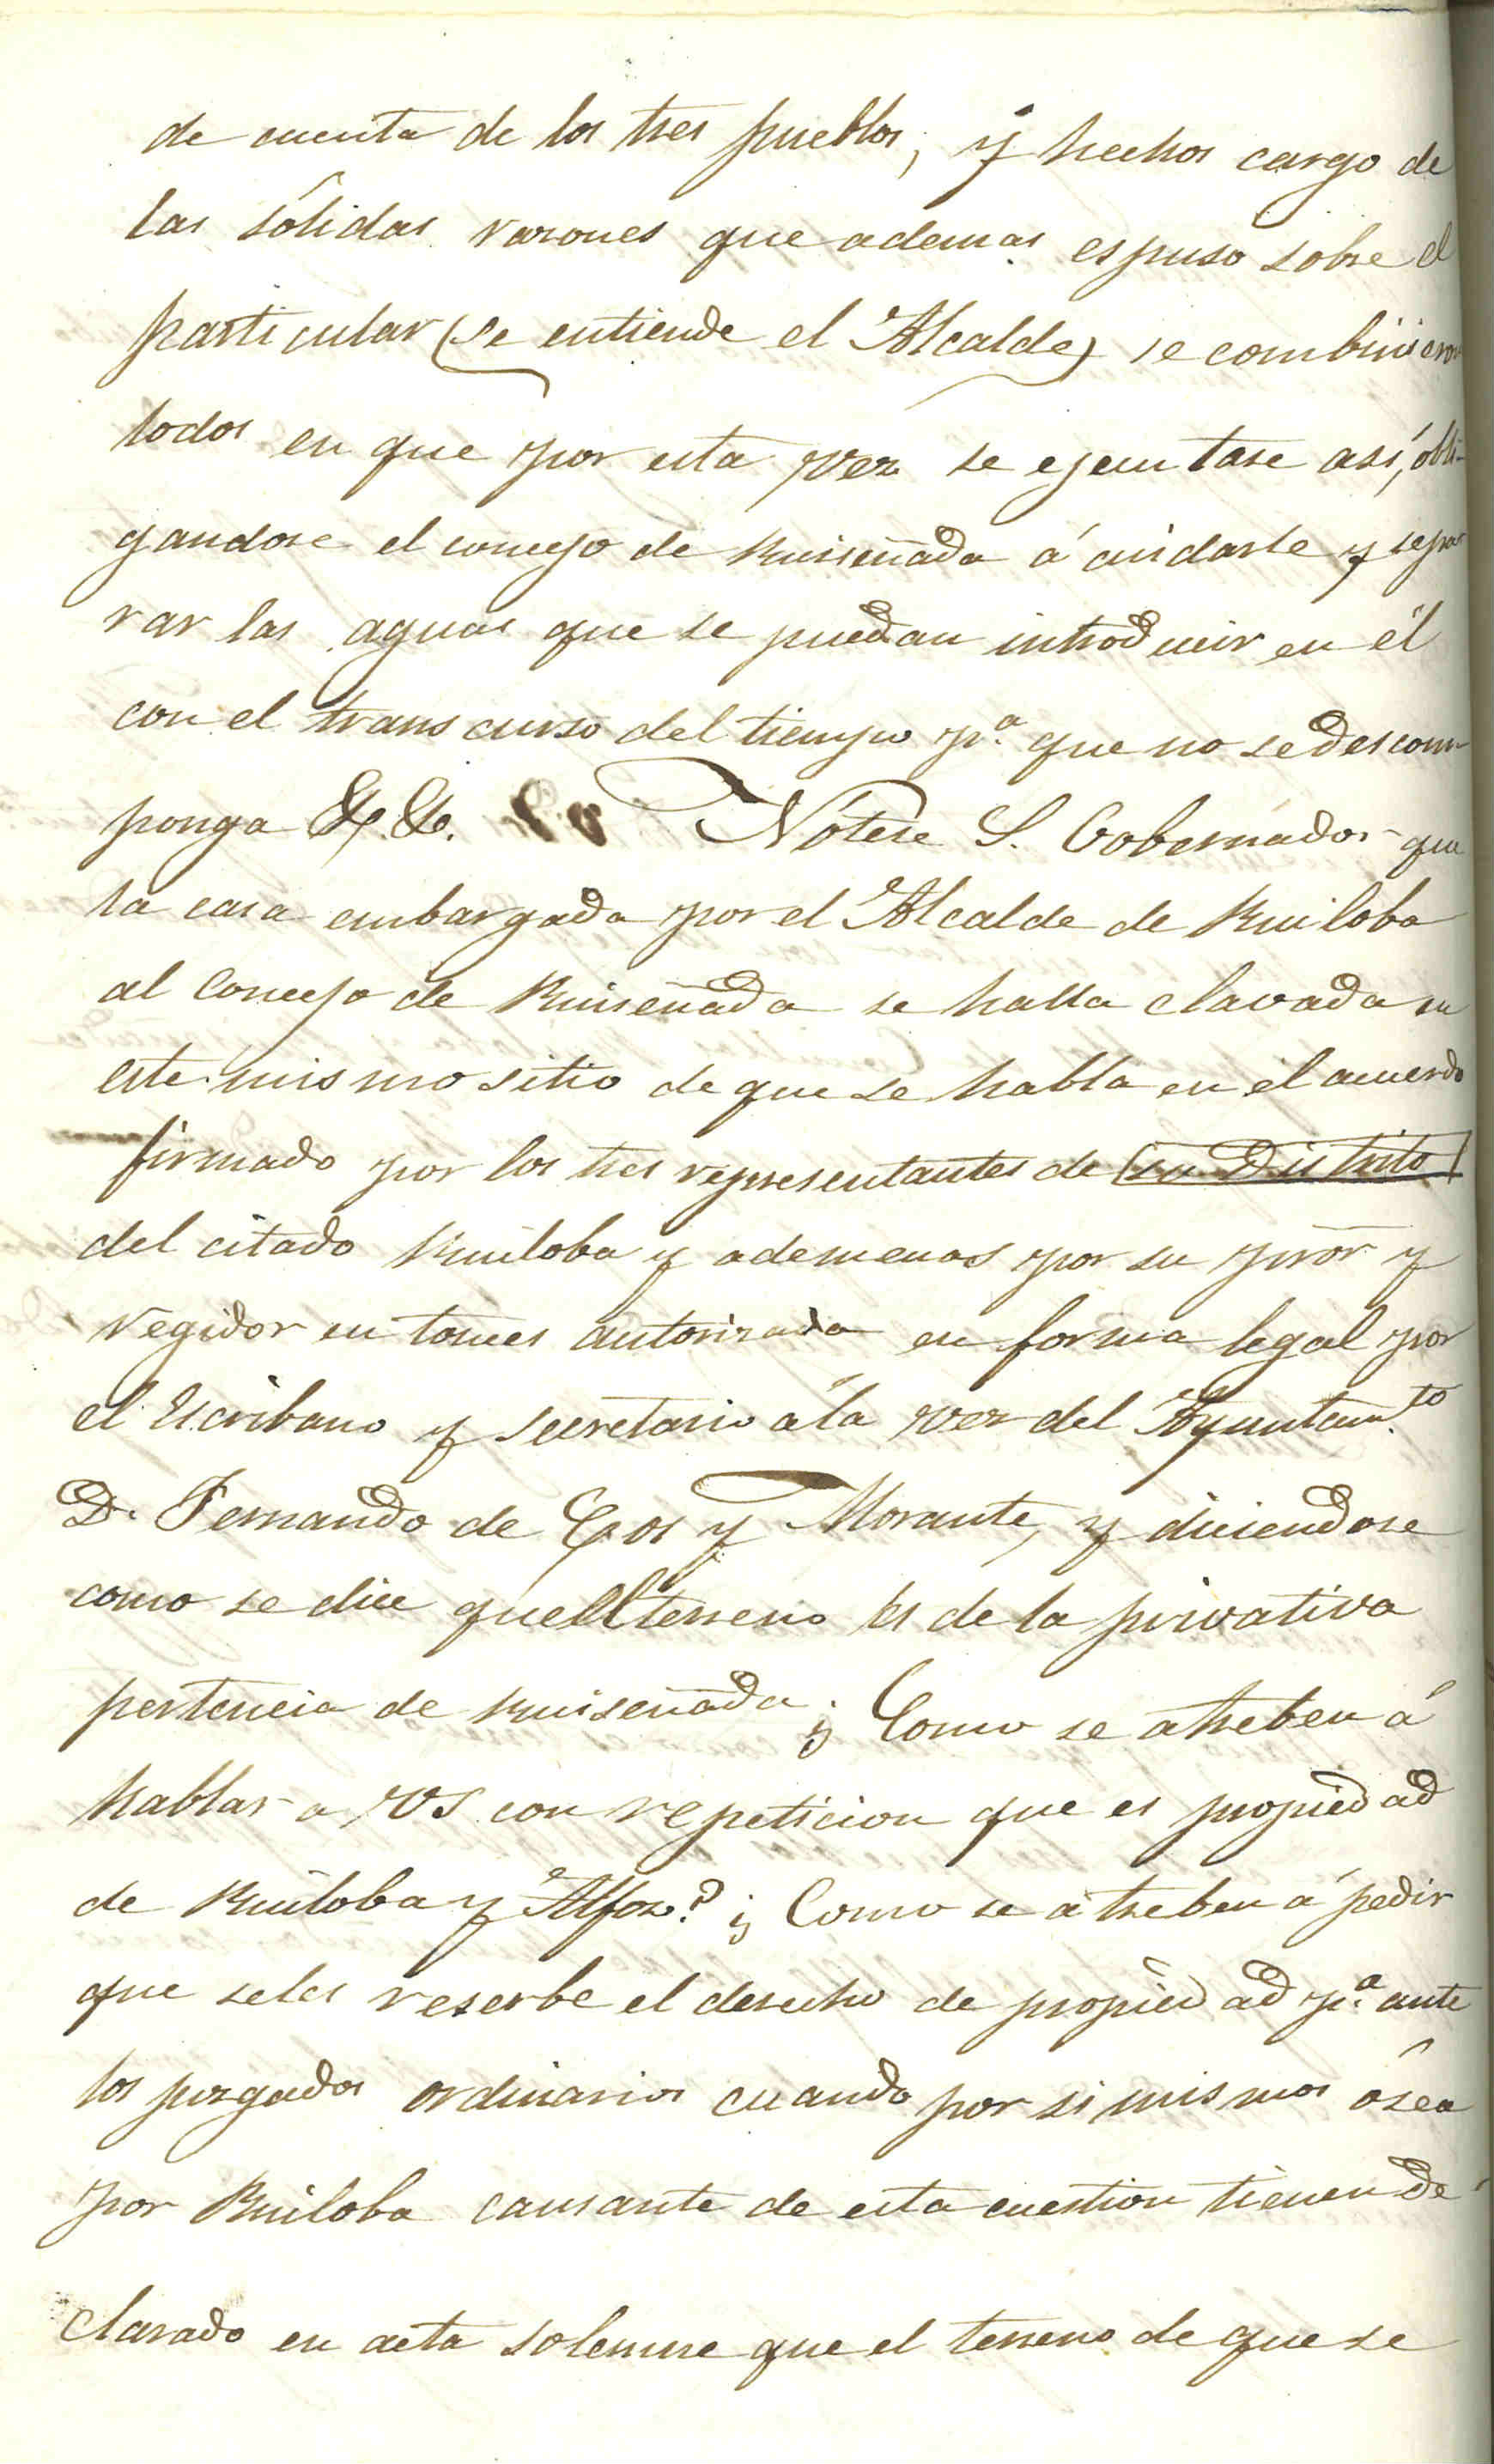 de cuenta de los tres pueblos, y hechos cargo de
las sólidas razones que ademas espuso sobre el
particular (se entiende el Alcalde) se combinieron
todos en que por esta vez se ejecutase así, obli-
gandose el concejo de Ruiseñada á cuidarle y sepa
rar las aguas que se puedan introducir en él
con el transcurso del tiempo p.ª que no se descom
ponga &. &. Nótese S. Gobernador que
la casa embargada por el Alcalde de Ruiloba
al Concejo de Ruiseñada se halla clavada en
este mismo sitio de que se habla en el acuerdo
firmado por los tres representantes de (su Distrito)
del citado Ruiloba y ademenas por su pror y
regidor entonces autorizada en forma legal por
el Escribano y secretario á la vez del Ayuntam.to
D. Fernando de Cos y Morante, y diciendose
como se dice que el terreno es de la privativa
pertencia de Ruiseñada; ¿Como se atreben á
hablar a VS con repeticion que es propiedad
de Ruiloba y Alfoz? ¿Como se atreben á pedir
que seles reserbe el derecho de propiedad p.ª ante
los juzgados ordinarios cuando por si mismos ó sea
por Ruiloba causante de esta cuestion tienen de
clarado en acta solemne que el terreno de que se